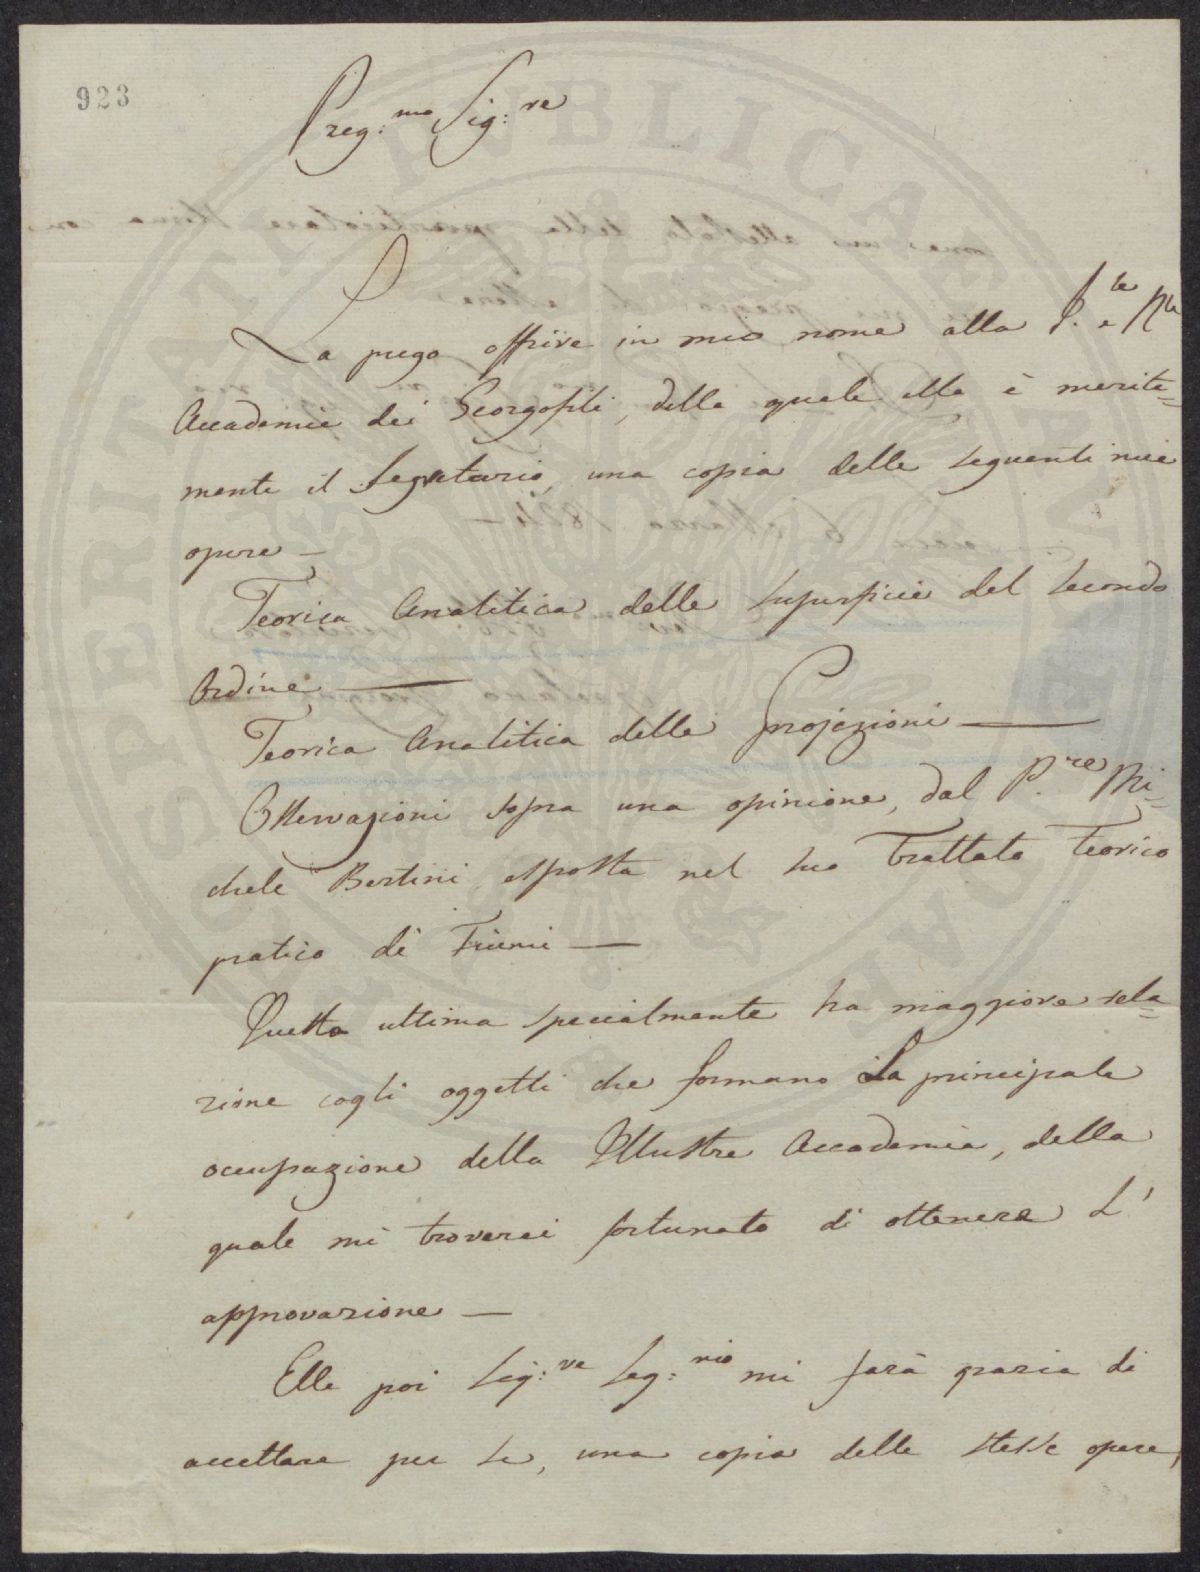 923
Preg:mo Sig:re
La prego offrire in mio nome alla I. e Rle
Accademia dei Georgofili, della quale ella è merita=
mente il Segretario, una copia delle seguenti mie
opere —
Teorica Analitica delle superficie del secondo
Ordine —
Teorica Analitica delle projezioni —
Osservazioni sopra una opinione, dal P.re Mi=
chele Bertini esposta nel suo Trattato Teorico
pratico di Fiumi —
Questa ultima specialmente ha maggiore rela=
zione cogli oggetti che formano La principale
occupazione della Illustre Accademia, della
quale mi troverei fortunato di ottenere L'
approvazione —
Ella poi Sig:re Seg:rio mi farà grazia di
accettare per se, una copia delle stesse opere,